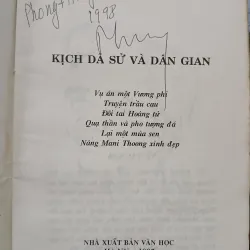 1998
KỊCH DÃ SỬ VÀ DÂN GIAN
Vụ án một Vương phi
Truyện trầu cau
Đôi tai Hoàng tử
Quạ thần và pho tượng đá
Lại một mùa sen
Nàng Mani Thoong xinh đẹp
NHÀ XUẤT BẢN VĂN HỌC